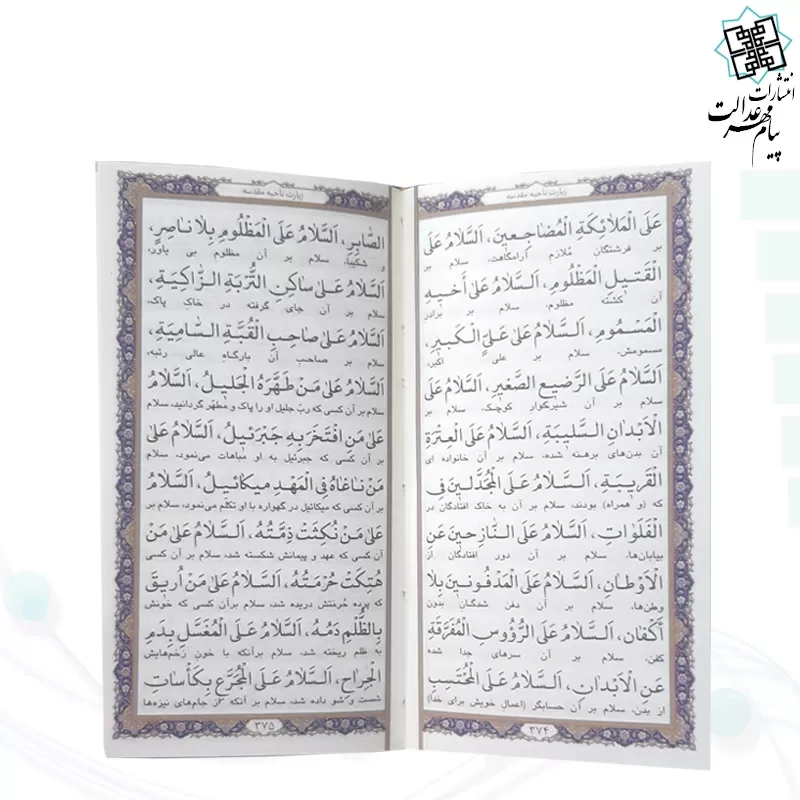 انتشارات
پیام مهر عدالت
زیارت ناحیه مقدسه
عَلَى الْمَلَائِكَةِ الْمُضَاجِعينَ، اَلسَّلَامُ عَلَى
بر فرشتگانِ مُلازِم آرامگاهت، سلام بر
الْقَتيلِ الْمَظْلُومِ، اَلسَّلَامُ عَلىٰ أَخيهِ
آن کُشته مظلوم، سلام بر برادرِ
الْمَسْمُومِ، اَلسَّلَامُ عَلىٰ عَلِيٍّ الْكَبيرِ،
مسمومش، سلام بر علی اکبر،
اَلسَّلَامُ عَلَى الرَّضيعِ الصَّغيرِ، اَلسَّلَامُ عَلَى
سلام بر آن شیرخوار کوچک، سلام بر
الْأَبْدَانِ السَّليبَةِ، اَلسَّلَامُ عَلَى الْعِتْرَةِ
آن بدن‌های برهنه شده، سلام بر آن خانواده ای
الْقَريبَةِ، اَلسَّلَامُ عَلَى الْمُجَدَّلينَ فِي
که (و همراه) بودند، سلام بر آن به خاک افتادگان در
الْفَلَوَاتِ، اَلسَّلَامُ عَلَى النَّازِحينَ عَنِ
بیابان‌ها، سلام بر آن دور افتادگان از
الْأَوْطَانِ، اَلسَّلَامُ عَلَى الْمَدْفُونينَ بِلَا
وطن‌ها، سلام بر آن دفن شدگان بدون
أَكْفَانٍ، اَلسَّلَامُ عَلَى الرُّؤُوسِ الْمُفَرَّقَةِ
کفن، سلام بر آن سرهای جدا شده
عَنِ الْأَبْدَانِ، اَلسَّلَامُ عَلَى الْمُحْتَسِبِ
از بدن، سلام بر آن حسابگر (اعمال خویش برای خدا)
۳۷۴
زیارت ناحیه مقدسه
الصَّابِرِ، اَلسَّلَامُ عَلَى الْمَظْلُومِ بِلَا نَاصِرٍ،
و شکیبا، سلام بر آن مظلوم بی یاور،
اَلسَّلَامُ عَلىٰ سَاكِنِ التُّرْبَةِ الزَّاكِيَةِ،
سلام بر آن جای گرفته در خاکِ پاک،
اَلسَّلَامُ عَلىٰ صَاحِبِ الْقُبَّةِ السَّامِيَةِ،
سلام بر صاحبِ آن بارگاه عالی رتبه،
اَلسَّلَامُ عَلىٰ مَنْ طَهَّرَهُ الْجَليلُ، اَلسَّلَامُ
سلام بر آن کسی که ربّ جلیل او را پاک و مطهّر گردانید، سلام
عَلىٰ مَنِ افْتَخَرَ بِهِ جَبْرَئيلُ، اَلسَّلَامُ عَلىٰ
بر آن کسی که جبرئیل به او مباهات می‌نمود، سلام بر
مَنْ نَاغَاهُ فِي الْمَهْدِ ميكَائيلُ، اَلسَّلَامُ
بر آن کسی که میکائیل در گهواره با او تکلّم می‌نمود، سلام بر
عَلىٰ مَنْ نُكِثَتْ ذِمَّتُهُ، اَلسَّلَامُ عَلىٰ مَنْ
آن کسی که عهد و پیمانش شکسته شد، سلام بر آن کسی
هُتِكَتْ حُرْمَتُهُ، اَلسَّلَامُ عَلىٰ مَنْ أُريقَ
که پرده حُرمتش دریده شد، سلام برآن کسی که خونش
بِالظُّلْمِ دَمُهُ، اَلسَّلَامُ عَلَى الْمُغَسَّلِ بِدَمِ
به ظلم ریخته شد، سلام برآنکه با خونِ زخم‌هایش
الْجِرَاحِ، اَلسَّلَامُ عَلَى الْمُجَرَّعِ بِكَأْسَاتِ
شست و شو داده شد، سلام بر آنکه از جام‌های نیزه‌ها
۳۷۵